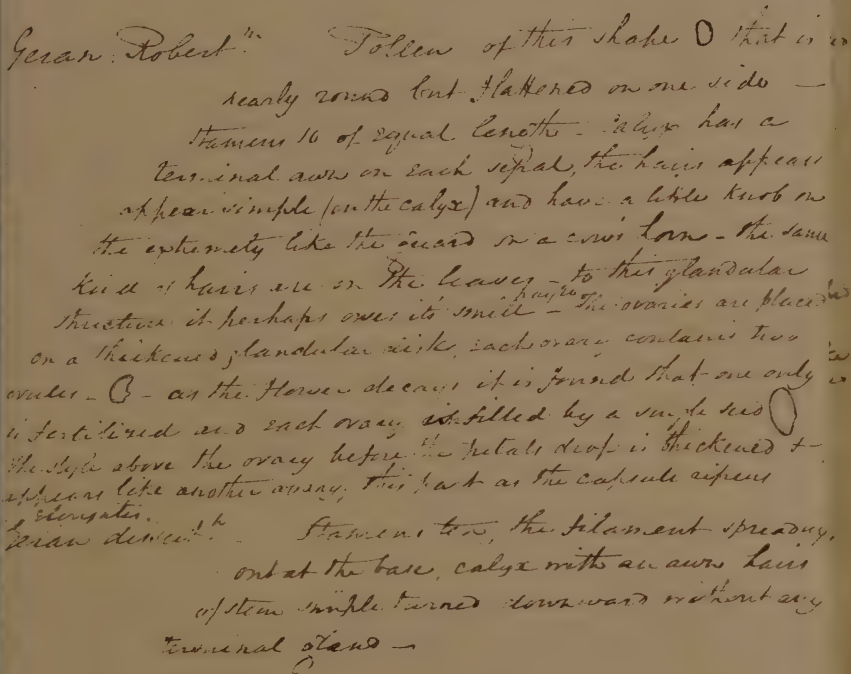 Geran: Robert.m Pollen of this shape that is
nearly round but flattened on one side —
stamens 10 of equal length - calyx has a
terminal awn on each sepal, the hairs appear
appear simple (on the calyx) and have a little knob on
the extremety like the guard on a cow's horn - the same
kind of hairs are on the leaves - to this glandular
structure it perhaps owes it's smell -
The ovaries are placed
on a thickened glandular disk, each ovary contains two
ovules - - as the flower decays it is found that one only
is fertilized and each ovary is filled by a single seed
the style above the ovary before the petals drop is thickened &
appears like another ovary, this part as the capsule ripens
elongates.
Geran Stamens ten, the filament spreading
out at the base, calyx with an awn hairs
of stem simple turned downward without any
terminal gland —